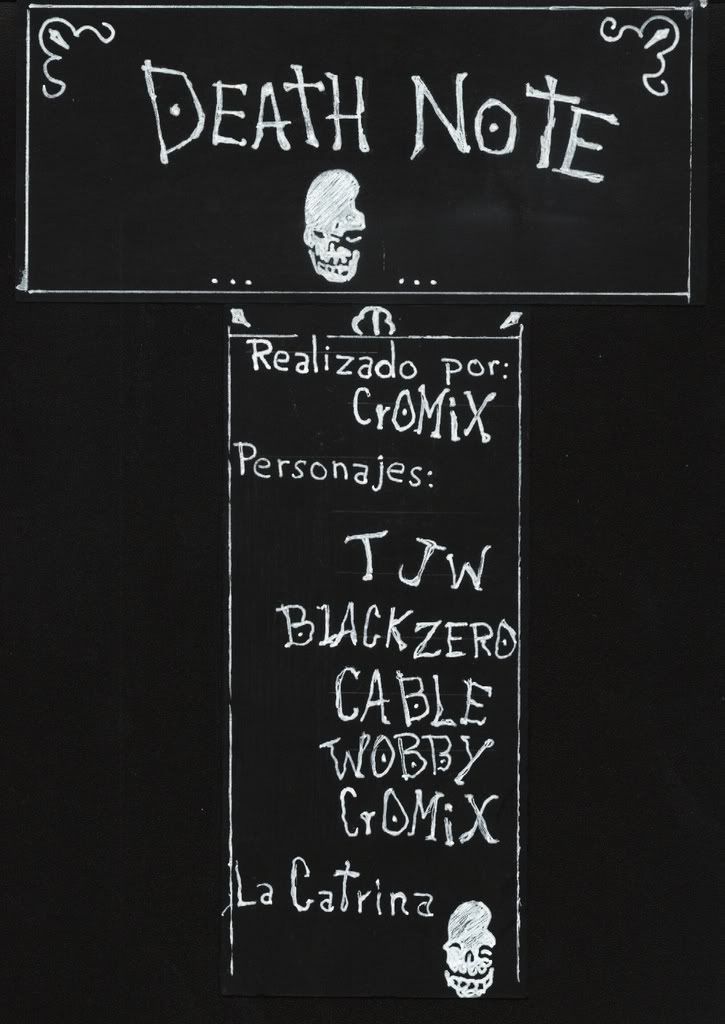 DEATH NOTE
... ...
Realizado por:
CrOMiX
Personajes:
TJW
BLACKZERO
CABLE
WOBBY
CrOMiX
La Catrina